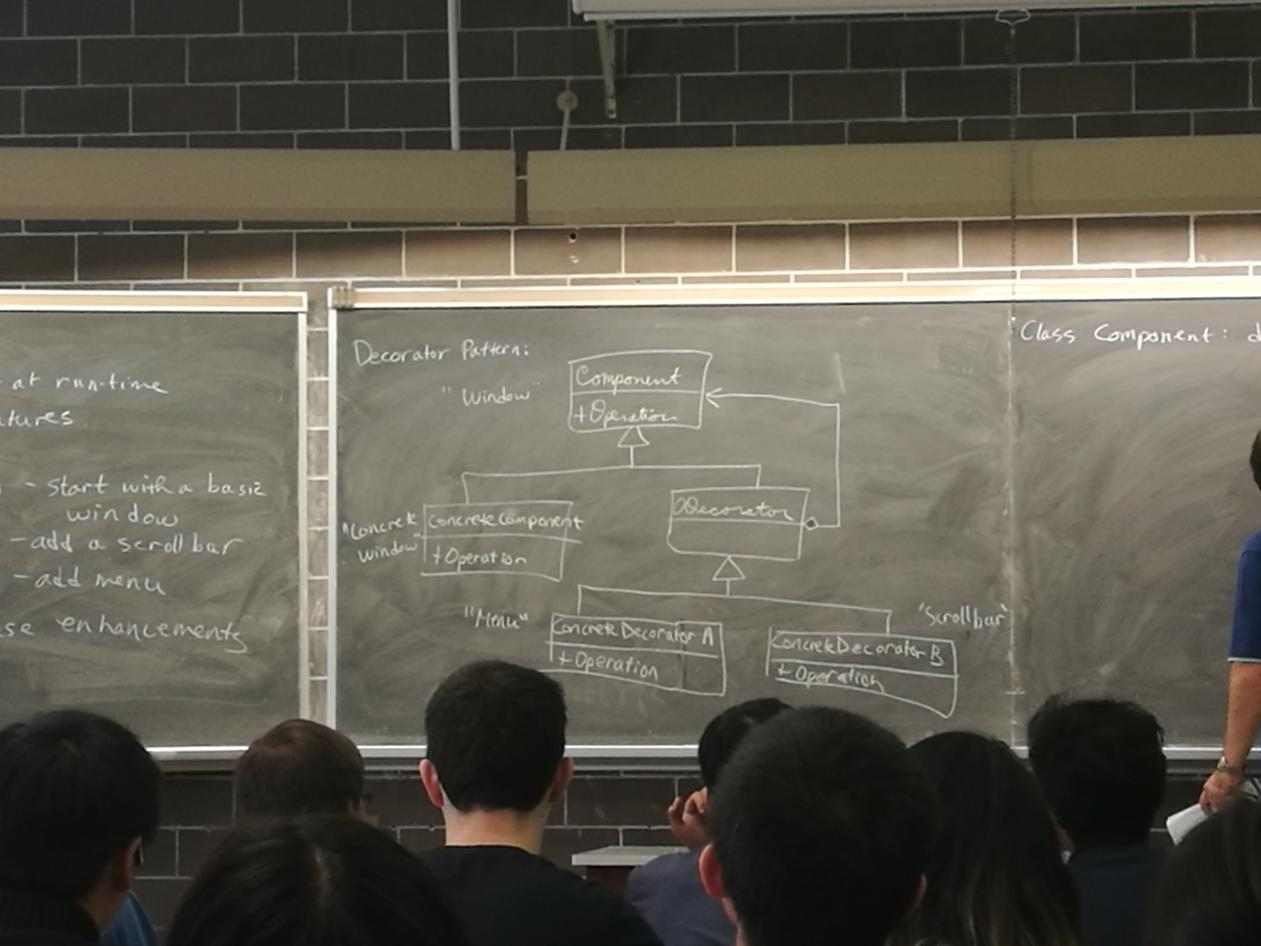 at run-time
- start with a basic
window
- add a scrollbar
- add menu
enhancements
Decorator Pattern:
"Window"
Component
+ Operation
"Concrete
window"
ConcreteComponent
+ Operation
Decorator
"Menu"
ConcreteDecorator A
+ Operation
"Scrollbar"
ConcreteDecorator B
+ Operation
Class Component: